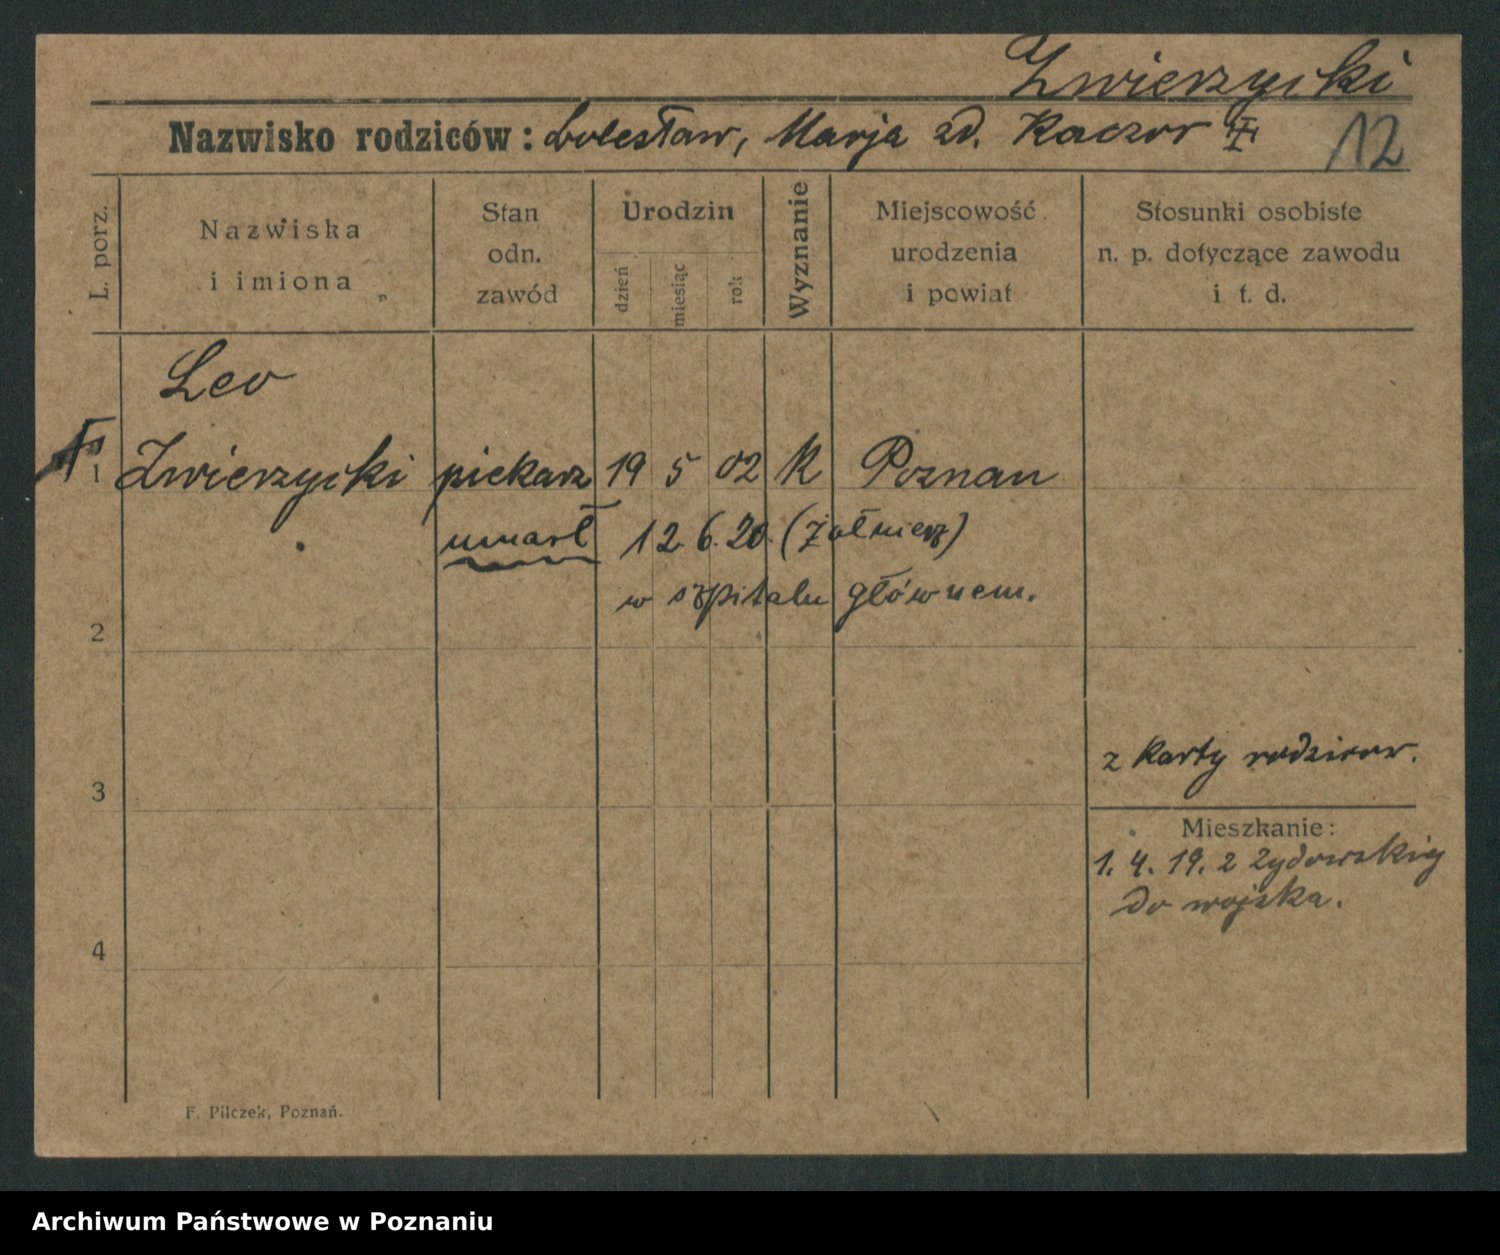 Zwierzycki
Nazwisko rodziców: Bolesław, Marja zd. Kaczor
12
L. porz.
Nazwiska
i imiona
Stan
odn.
zawód
Urodzin
dzień
miesiąc
rok
Wyznanie
Miejscowość
urodzenia
i powiat
Stosunki osobiste
n. p. dotyczące zawodu
i t. d.
Leo
1 Zwierzycki piekarz 19 5 02 K Poznan
umarł 12. 6. 20. (żołnierz)
w szpitalu głównem.
2
z karty rodziców.
3
Mieszkanie:
1. 4. 19. z Zydowskiej
do wojska.
4
F. Pilczek, Poznań.
Archiwum Państwowe w Poznaniu